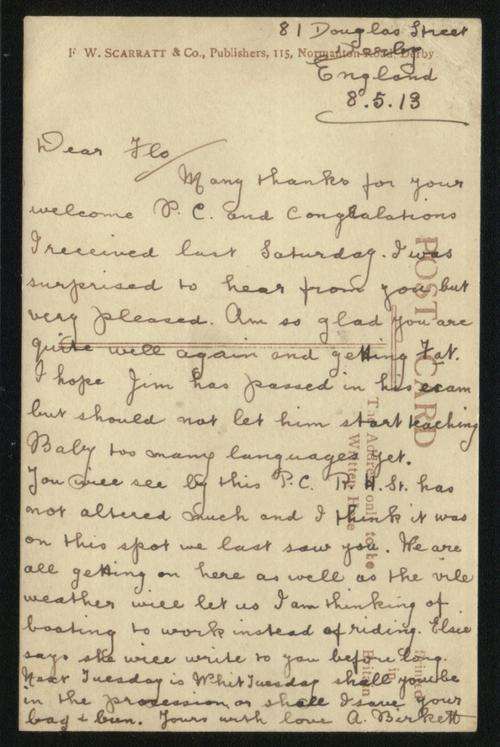 81 Douglas Street
F. W. SCARRATT & Co., Publishers, 115, Normanton Road, Derby
Derby
England
8.5.13
Dear Flo
Many thanks for your
welcome P. C. and Congtalations
I received last Saturday. I was
surprised to hear from you but
very pleased. Am so glad you are
quite well again and getting Fat.
I hope Jim has passed in his exam
but should not let him start teaching
Baby too many languages yet.
You will see by this P.C. R. H. St. has
not altered much and I think it was
on this spot we last saw you. We are
all getting on here as well as the vile
weather will let us I am thinking of
boating to work instead of riding. Elsie
says she will write to you before long.
Next Tuesday is Whit Tuesday shall you be
in the procession or shall I save your
bag & bun. Yours with love A. Birkett
POST CARD
The Address only to be
Written Here